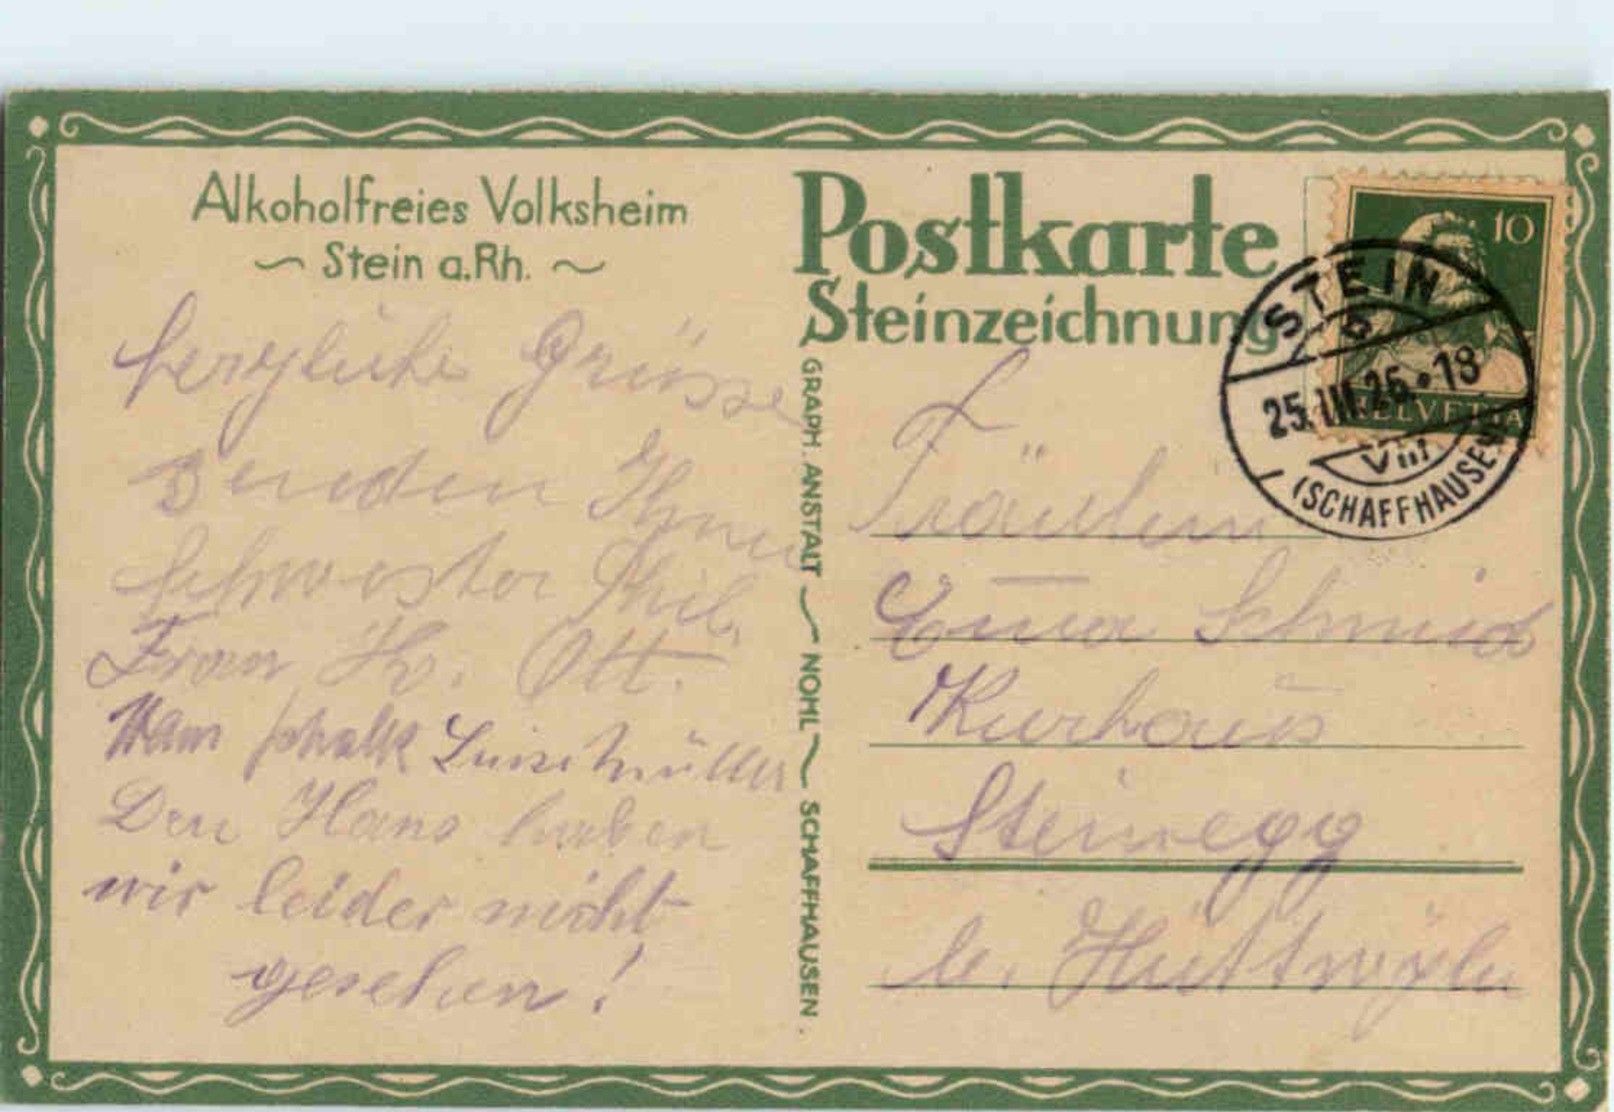 Alkoholfreies Volksheim
~ Stein a.Rh. ~
Postkarte
Steinzeichnung
10
HELVETIA
STEIN
25.III.26.•18
VIII
(SCHAFFHAUSEN)
GRAPH. ANSTALT ~ NOHL ~ SCHAFFHAUSEN.
herzliche Grüsse
senden Ihnen
Schwester
Frau Hr. Ott.
Den Hans haben
wir leider nicht
gesehen!
Fräulein
Emma Schmid
Kurhaus
Steinegg
b. Hüttwylen